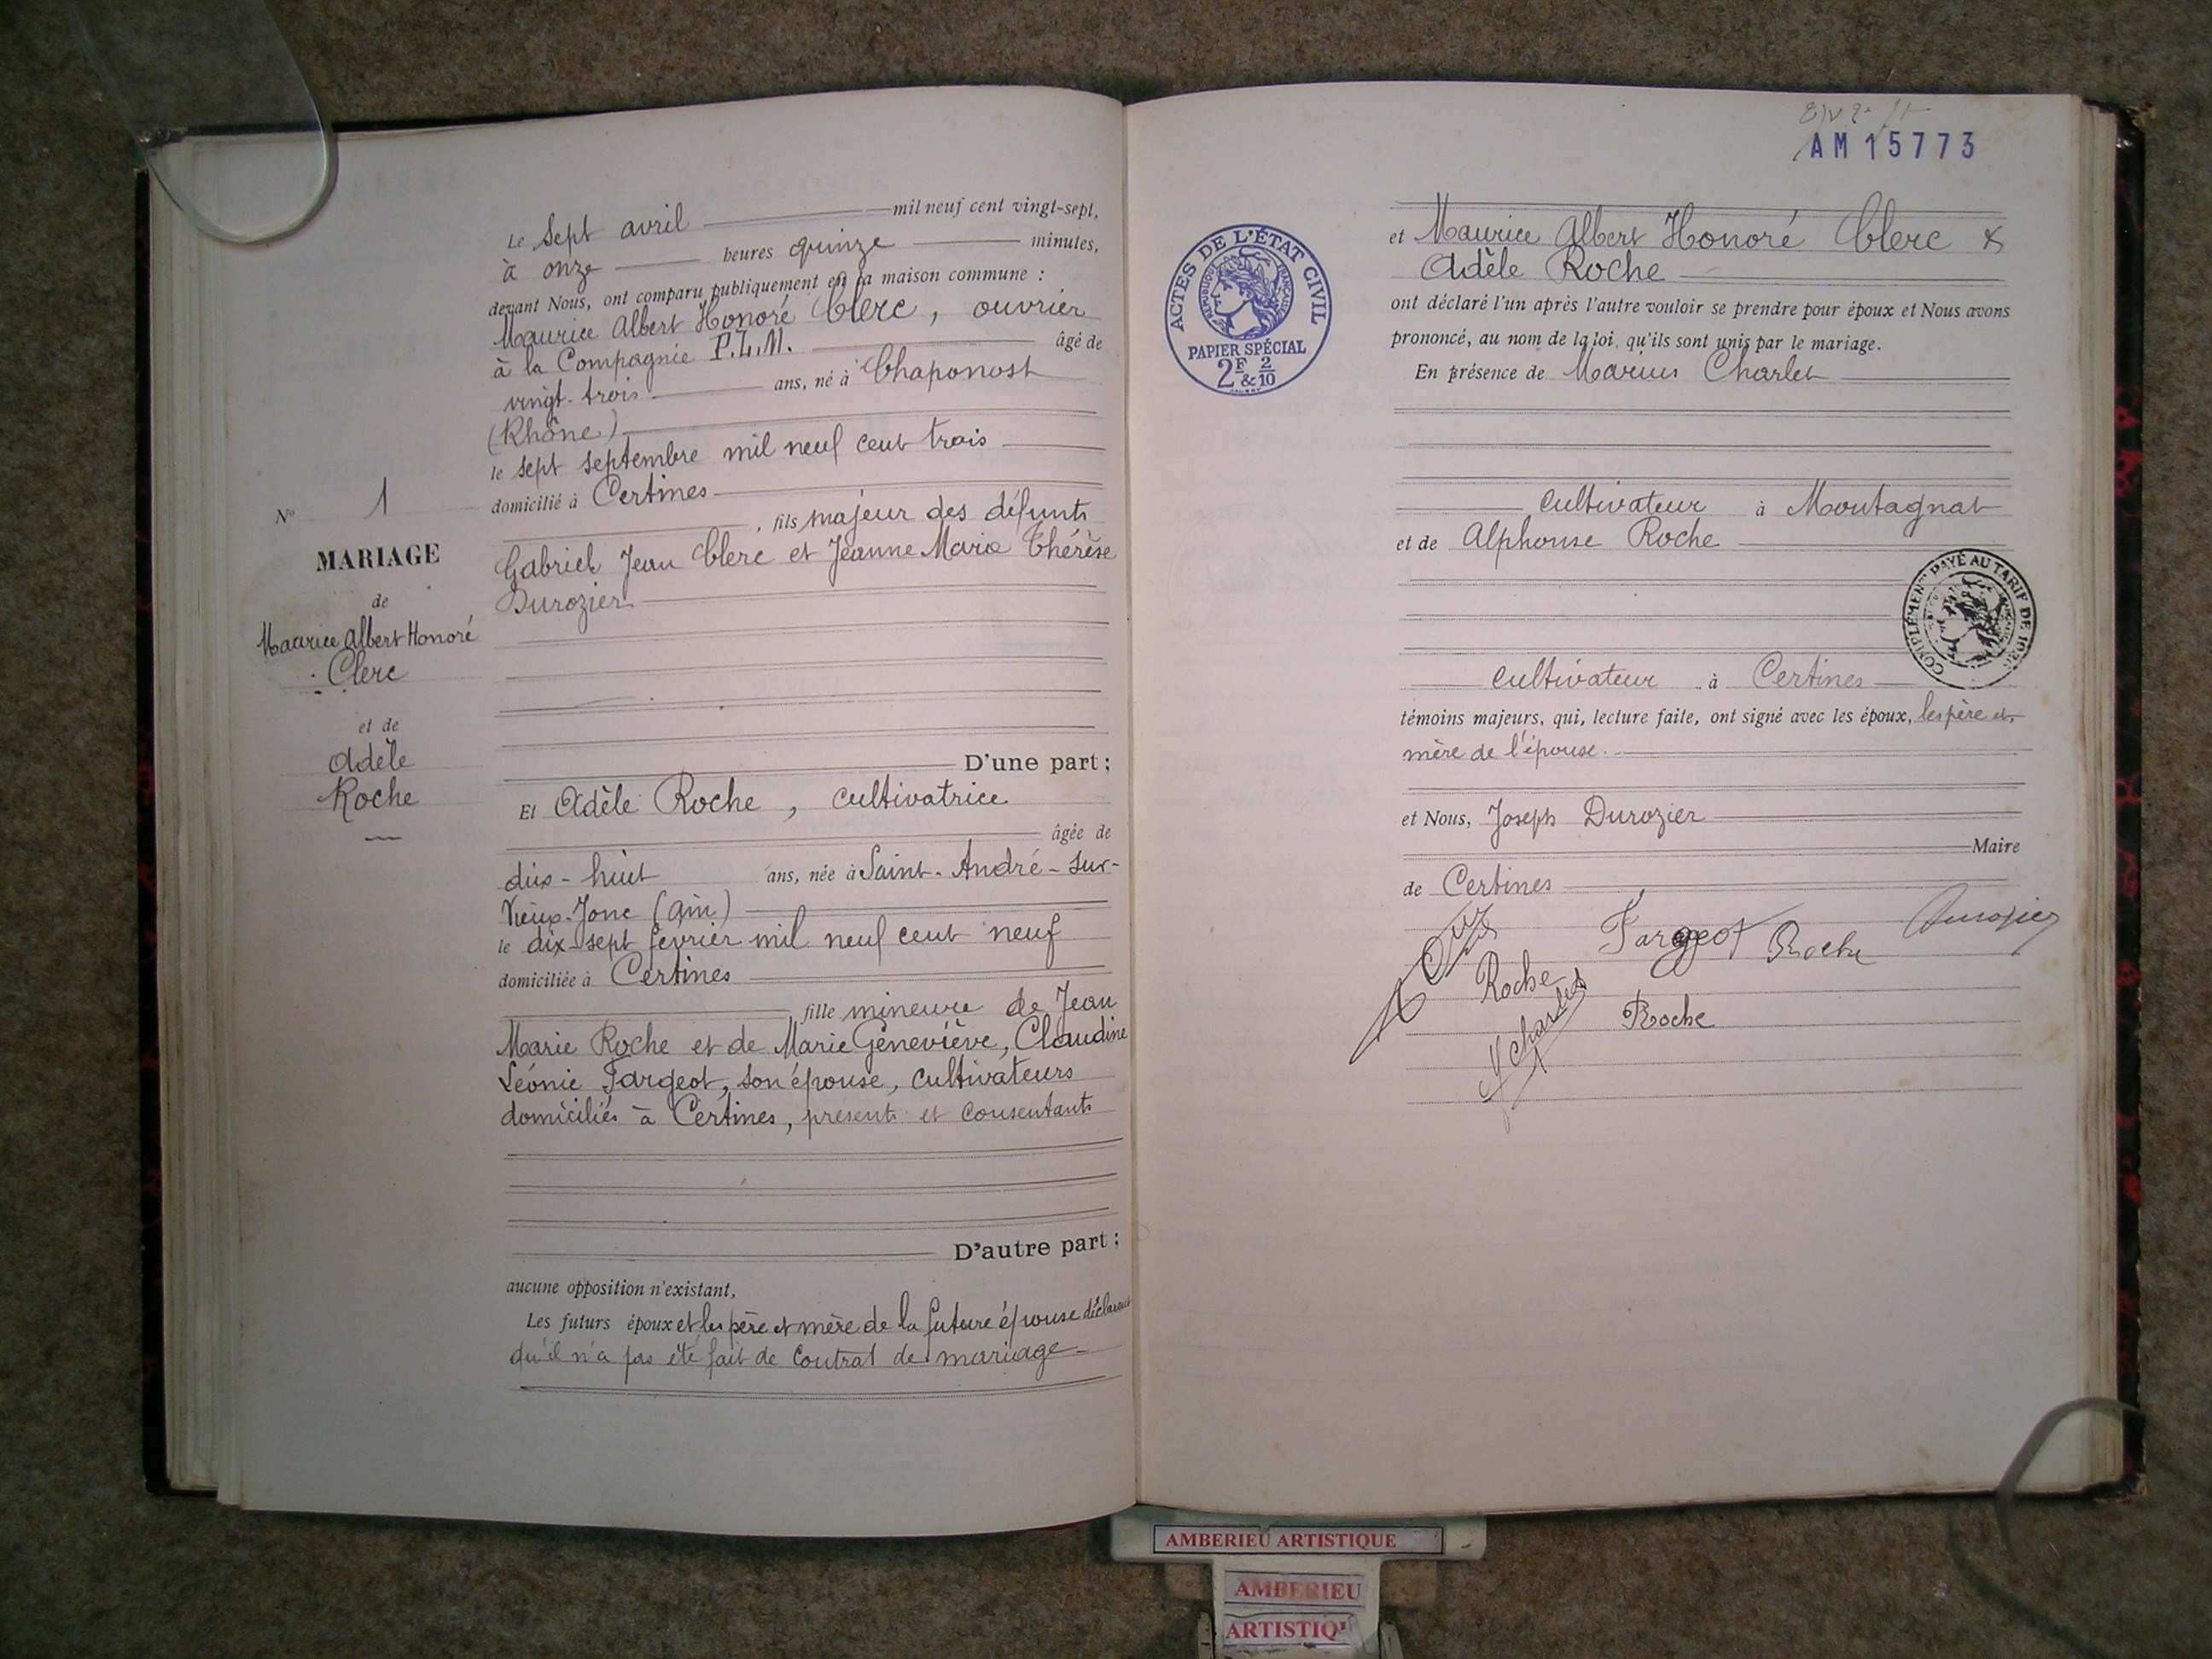 Le sept avril mil neuf cent vingt-sept,
à onze heures quinze minutes,
devant Nous, ont comparu publiquement en la maison commune :
Maurice Albert Honoré Clerc, ouvrier
à la Compagnie P.L.M. âgé de
vingt-trois ans, né à Chaponost
(Rhône)
le sept septembre mil neuf cent trois
domicilié à Certines
, fils majeur des défunts
Gabriel Jean Clerc et Jeanne Marie Thérèse
Durozier
No 1
MARIAGE
de
Maurice Albert Honoré
Clerc
et de
Adèle
Roche
D'une part ;
Et Adèle Roche, cultivatrice
âgée de
dix-huit ans, née à Saint-André-sur-
Vieux-Jonc (Ain)
le dix-sept février mil neuf cent neuf
domiciliée à Certines
fille mineure de Jean
Marie Roche et de Marie Geneviève, Claudine
Léonie Fargeot, son épouse, cultivateurs
domiciliés à Certines, présents et consentants
D'autre part ;
aucune opposition n'existant,
Les futurs époux et les père et mère de la future épouse déclarent
qu'il n'a pas été fait de contrat de mariage
AM 15773
ACTES DE L'ÉTAT CIVIL
RÉPUBLIQUE FRANÇAISE
PAPIER SPÉCIAL
2F & 2/10
et Maurice Albert Honoré Clerc &
Adèle Roche
ont déclaré l'un après l'autre vouloir se prendre pour époux et Nous avons
prononcé, au nom de la loi, qu'ils sont unis par le mariage.
En présence de Marius Charlet
cultivateur à Montagnat
et de Alphonse Roche
COMPLÉMENT PAYÉ AU TARIF DE
cultivateur à Certines
témoins majeurs, qui, lecture faite, ont signé avec les époux, les père et
mère de l'épouse.
et Nous, Joseph Durozier
Maire
de Certines
Fargeot Roche Durozier
Roche
Charlet
Roche
AMBERIEU ARTISTIQUE
AMBERIEU
ARTISTIQ